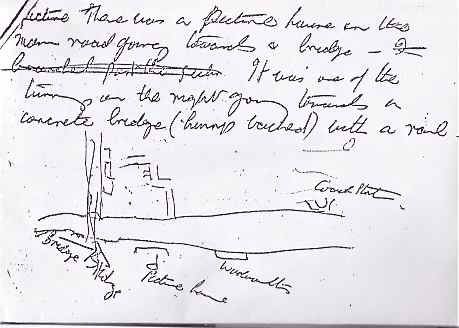 picture There was a picture house on the
main road going towards a bridge –
It was one of the
turnings on the right going towards a
concrete bridge (hump backed) with a road
Coach Stat
Bridge
Bridge
Picture house
Woolworths